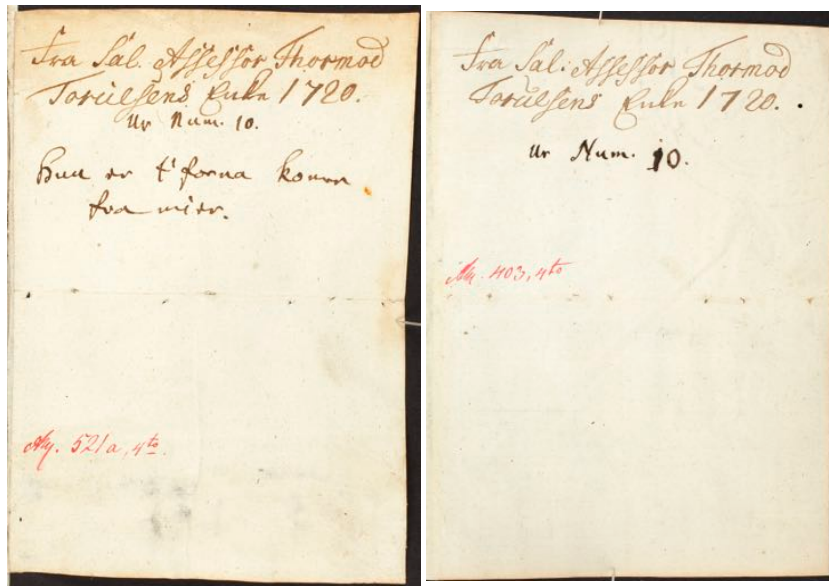 Fra Sal. Assessor Thormod
Toruesens Enke 1720.
Ur Num. 10.
Hun er til forna komen
fra mier.
AM. 521a, 4to.
Fra Sal: Assessor Thormod
Toruesens Enke 1720.
Ur Num. 10.
AM. 403, 4to